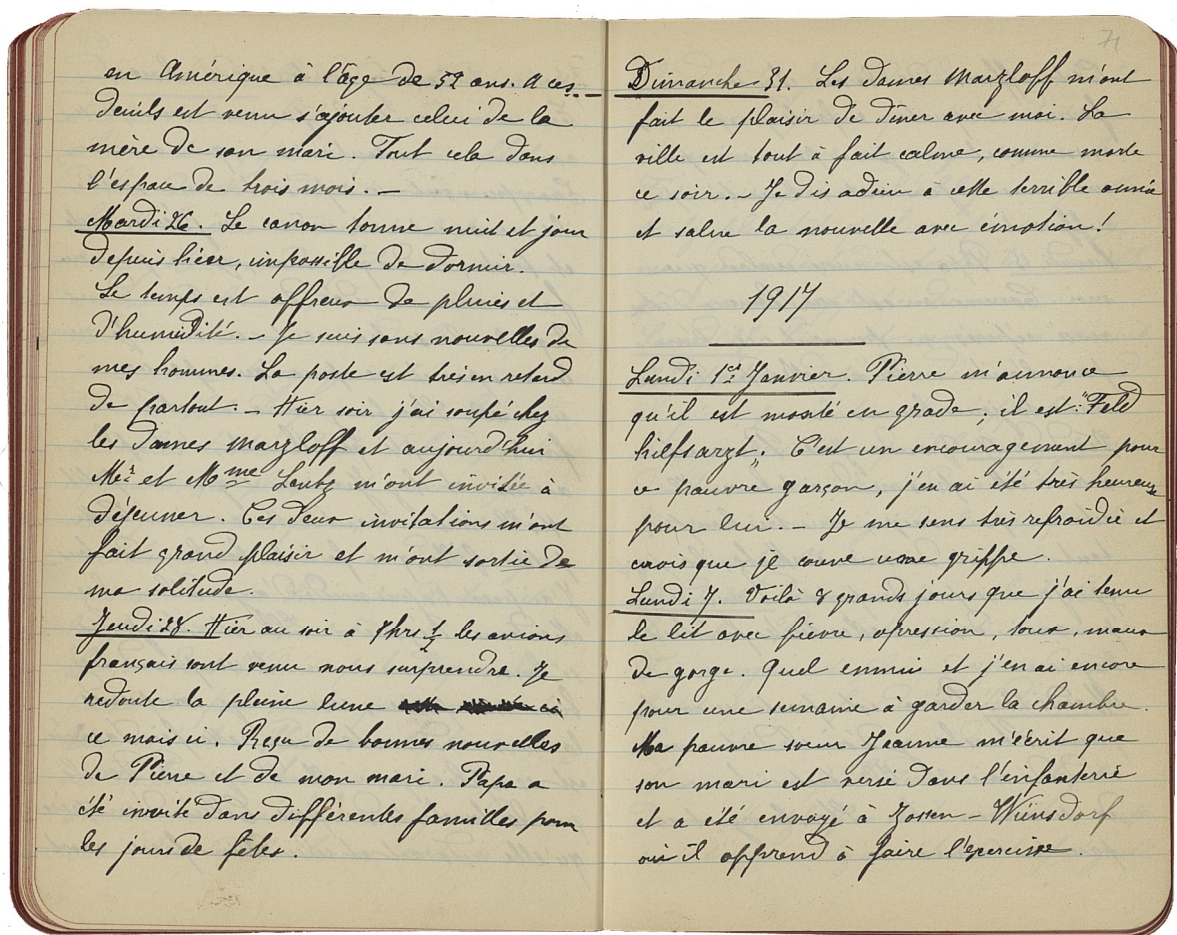 en Amérique à l'âge de 52 ans. A ces
deuils est venu s'ajouter celui de la
mère de son mari. Tout cela dans
l'espace de trois mois. –
Mardi 26. Le canon tonne nuit et jour
depuis hier, impossible de dormir.
Le temps est affreux de pluies et
d'humidité. – Je suis sans nouvelles de
mes hommes. La poste est très en retard
de partout. – Hier soir j'ai soupé chez
les dames Marzloff et aujourd'hui
Mr et Mme Lentz m'ont invitée à
déjeuner. Ces deux invitations m'ont
fait grand plaisir et m'ont sortie de
ma solitude.
Jeudi 28. Hier au soir à 7hrs ½ les avions
français sont venu nous surprendre. Je
redoute la pleine lune
ce mois ci. Reçu de bonnes nouvelles
de Pierre et de mon mari. Papa a
été invité dans différentes familles pour
les jours de fêtes.
71
Dimanche 31. Les dames Marzloff m'ont
fait le plaisir de dîner avec moi. La
ville est tout à fait calme, comme morte
ce soir. – Je dis adieu à cette terrible année
et salue la nouvelle avec émotion!
1917
Lundi 1er Janvier. Pierre m'annonce
qu'il est monté en grade, il est "Feld
hilfsarzt". C'est un encouragement pour
ce pauvre garçon, j'en ai été très heureuse
pour lui. – Je me sens très refroidie et
crois que je couve une grippe.
Lundi 7. Voilà 8 grands jours que j'ai tenu
le lit avec fièvre, opression, toux, maux
de gorge. Quel ennui et j'en ai encore
pour une semaine à garder la chambre.
Ma pauvre sœur Jeanne m'écrit que
son mari est versé dans l'infanterie
et a été envoyé à Zossen – Wünsdorf
où il apprend à faire l'exercisse.